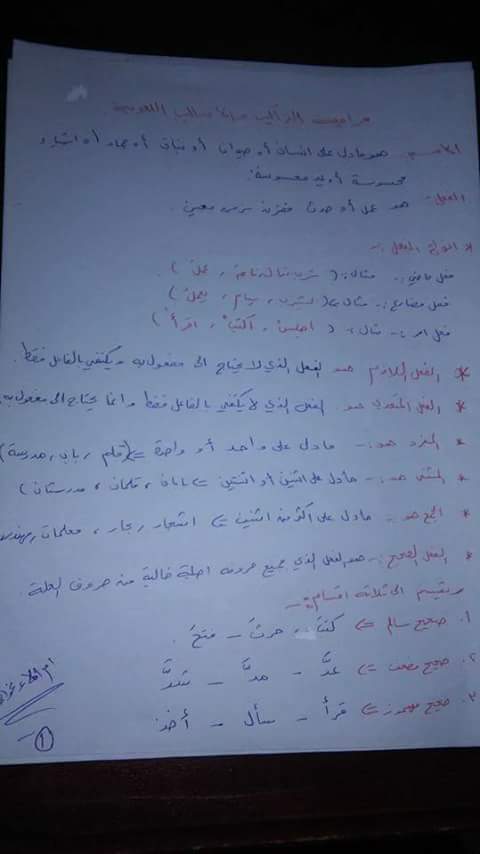 مراجعة التراكيب والأساليب اللغوية
الاسم: هو ما دل على انسان أو حيوان أو نبات أو جماد أو اشياء
محسوسة أو غير محسوسة.
الفعل: هو عمل أو حدث مقترن بزمن معين.
* انواع الفعل :-
فعل ماضي :- مثال :- ( شربَ ، نامَ ، عملَ )
فعل مضارع :- مثال :- ( يشرب ، ينام ، يعمل )
فعل امر :- مثال :- ( اجلسْ ، اكتبْ ، اقرأْ )
* الفعل اللازم هو الفعل الذي لا يحتاج الى مفعول به ويكتفي بالفاعل فقط.
* الفعل المتعدي هو الفعل الذي لا يكتفي بالفاعل فقط وانما يحتاج الى مفعول به
* المفرد هو :- مادل على واحد أو واحدة => (قلم ، باب ، مدرسة)
* المثنى هو :- مادل على اثنين أو اثنتين => بابان ، قلمان ، مدرستان )
* الجمع هو :- مادل على أكثر من اثنين => اشجار ، معلمات ،
* الفعل الصحيح :- هو الفعل الذي جميع حروفه اصلية خالية من حروف العلة.
ويقسم الى ثلاثة اقسام :-
١. صحيح سالم => كتبَ - حرثَ - فتحَ .
٢. صحيح مضعف => عدَّ - هدَّ - شدَّ
٣. صحيح مهموز => قرأ - سأل - أخذ
١